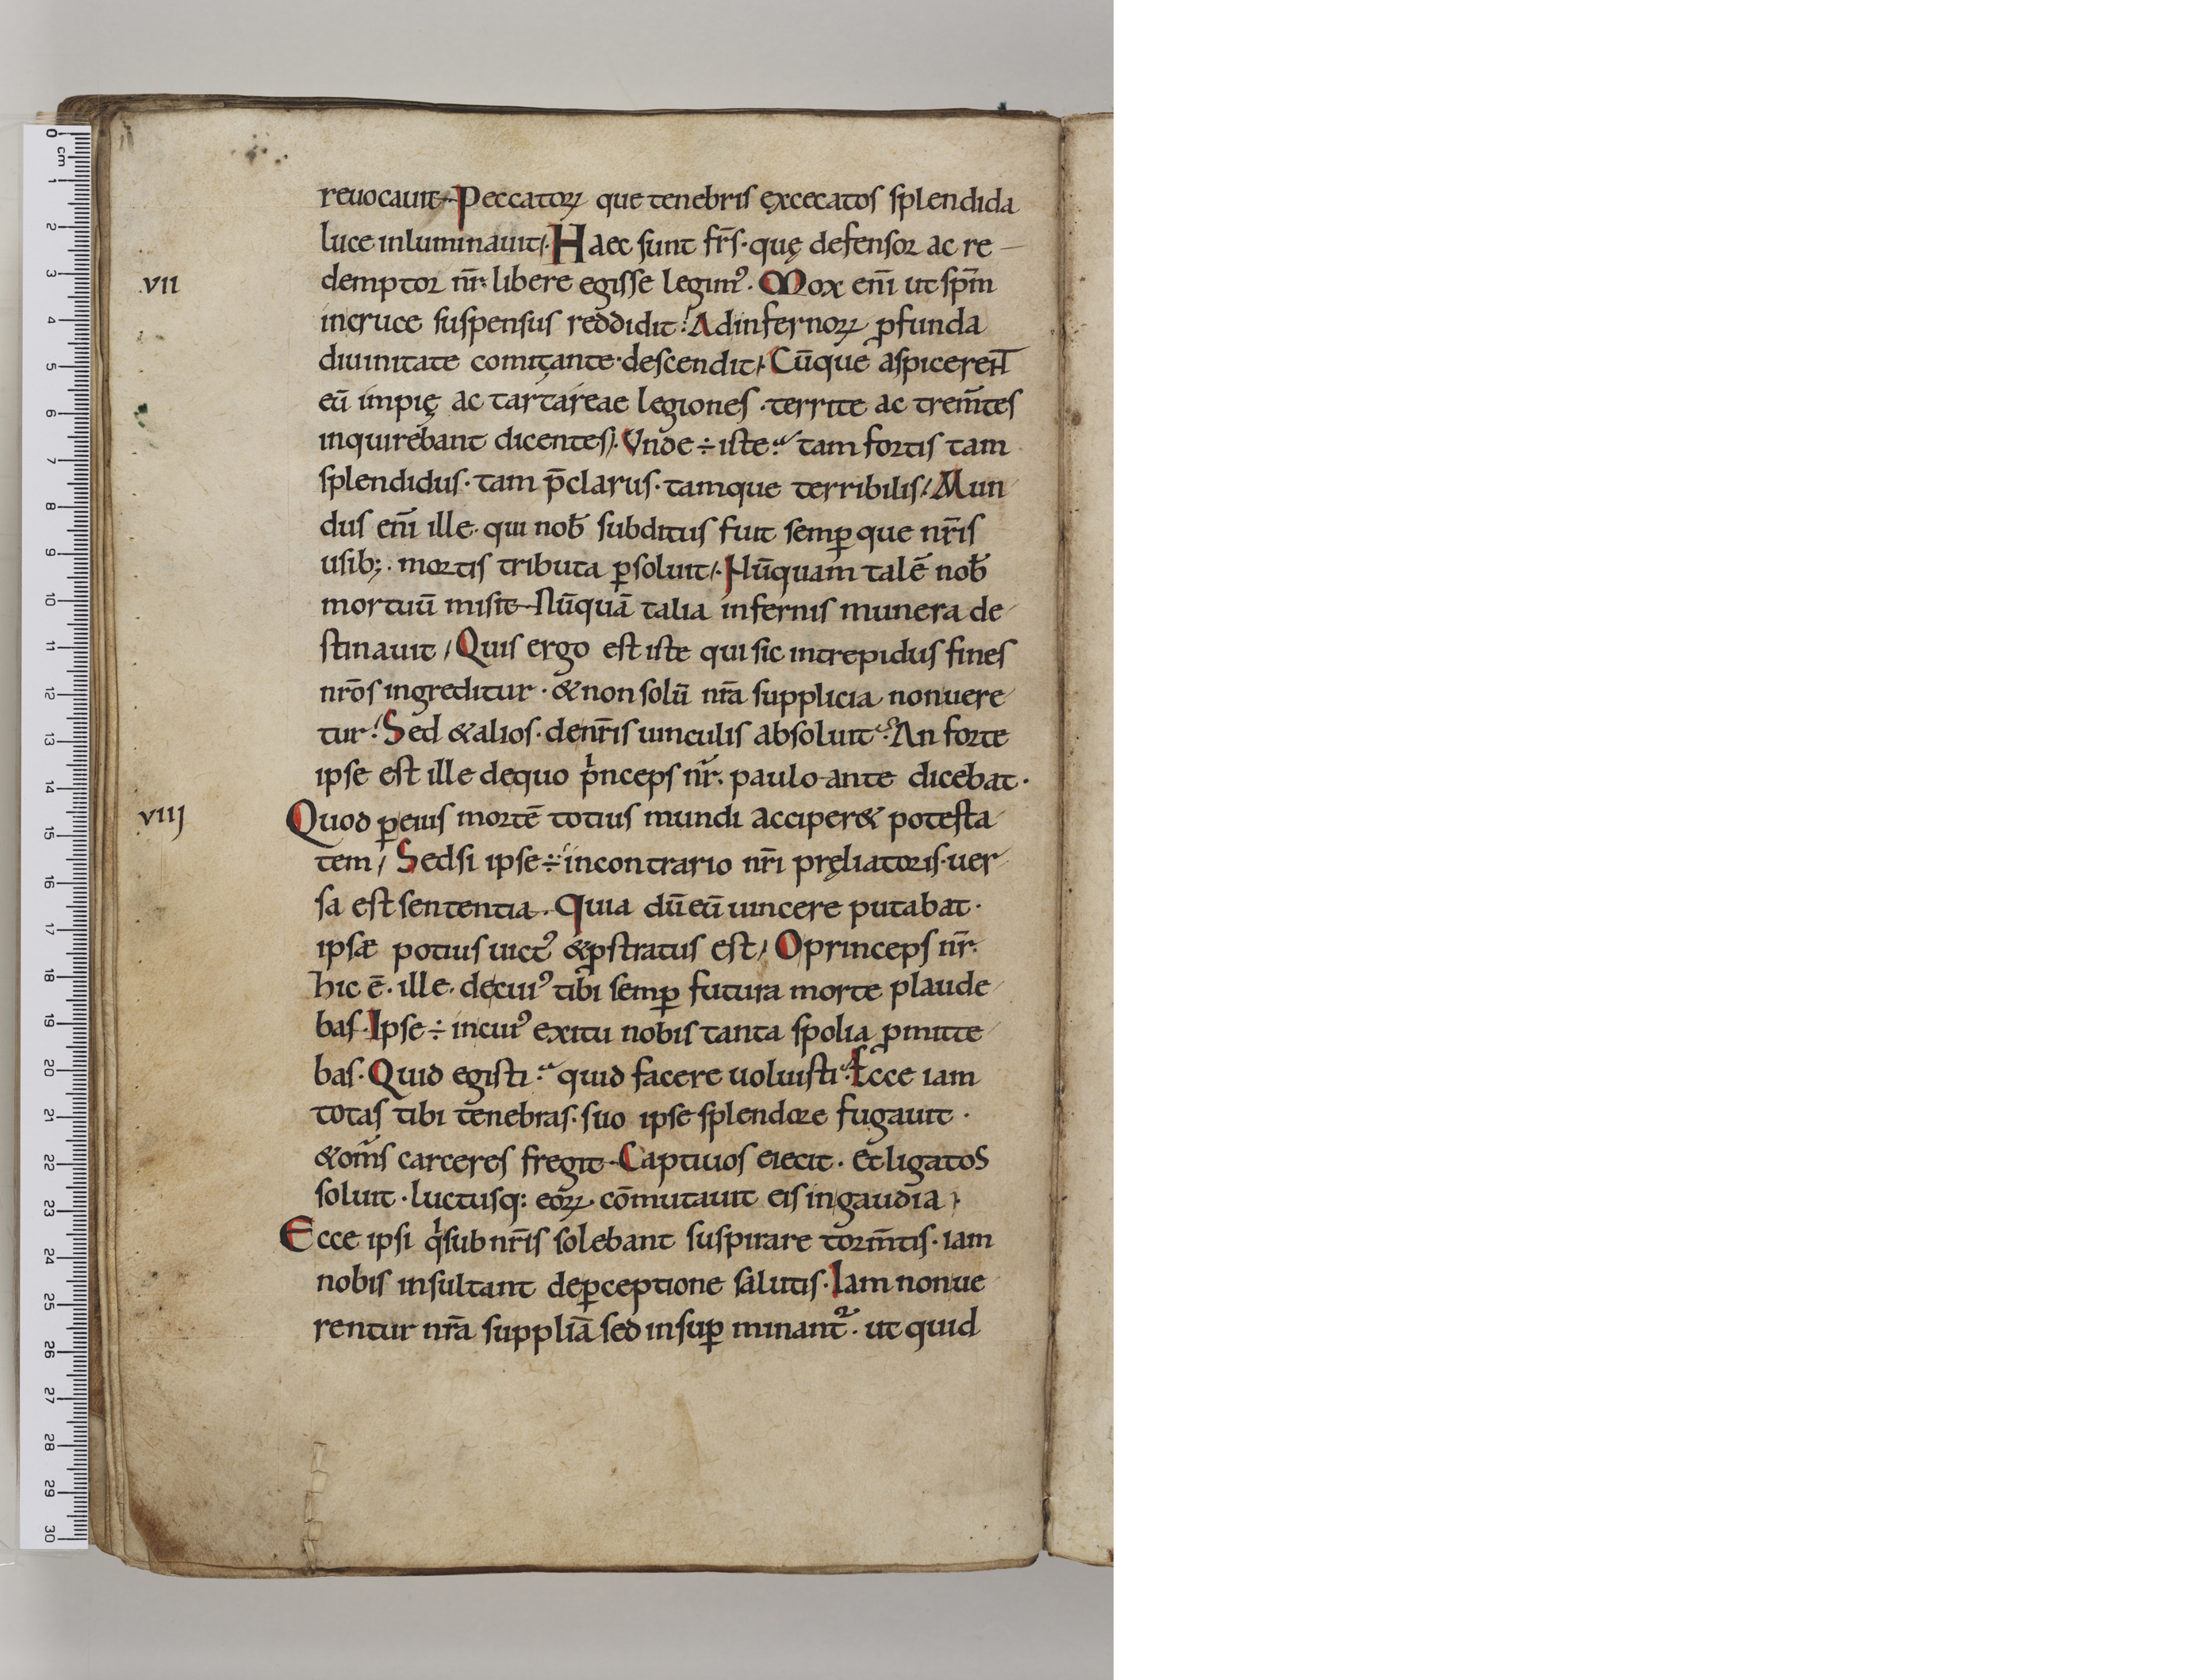 reuocauit. Peccatoꝝ que tenebris excęcatos splendida
luce inluminauit. Haec sunt fr̄s. quę defensor ac re
.vii demptor nr̄. libere egisse legim᾽. Mox eni̅ ut spm̅
incruce suspensus reddidit. Adinfernoꝝ ꝓfunda
diuinitate comitante. descendit. Cu̅que aspicerent
eu̅ impię ac tartareae legiones. territe ac trem̅tes
inquirebant dicentes. Vnde ÷ iste? tam fortis tam
splendidus. tam p̅clarus. tamque terribilis. Mun
dus eni̅ ille. qui nob̅ subditus fuit semꝑque nr̅is
usib;. mortis tributa ꝑsoluit. Nu̅quam tale̅ nob̅
mortuu̅ misit. Nu̅qua̅ talia infernis munera de
stinauit. Quis ergo est iste qui sic intrepidus fines
nr̅os ingreditur. & non solu̅ nr̅a supplicia nonuere
tur. Sed &alios. denr̅is uinculis absoluit? An forte
ipse est ille dequo pⁱnceps nr̅. paulo ante dicebat.
viij Quod ꝑeius morte̅ totius mundi acciper& potesta
tem. Sedsi ipse ÷ incontrario nr̅i pręliatoris. uer
sa est sententia. Quia du̅ eu̅ uincere putabat.
ipsæ potius uict᾽ &ꝓstratus est. O princeps nr̅.
hic e̅. ille. decui᾽ tibi semꝑ futura morte plaude
bas. Ipse ÷ incui᾽ exitu nobis tanta spolia ꝓmitte
bas. Quid egisti? quid facere uoluisti? Ecce iam
totas tibi tenebras. suo ipse splendore fugauit.
&om̅s carceres fregit. Captiuos eiecit. et ligatos
soluit. luctusq: eoꝝ. co̅mutauit eis ingaudia.
Ecce ipsi qⁱsub nr̅is solebant suspirare torm̅tis. iam
nobis insultant deꝑceptione salutis. Iam nonue
rentur nr̅a supplia̅ sed insuꝑ minant᾽. ut quid